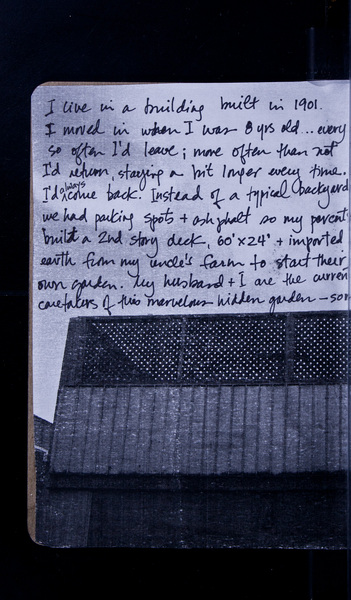 I live in a building built in 1901.
I moved in when I was 8 yrs old... every
so often I'd leave; more often than not
I'd return, staying a bit longer every time.
I'd always come back. Instead of a typical backyard
we had parking spots + ashphalt so my parents
built a 2nd story deck, 60'x24' + imported
earth from my uncle's farm to start their
own garden. My husband + I are the curren
caretakers of this marvelous hidden garden — som